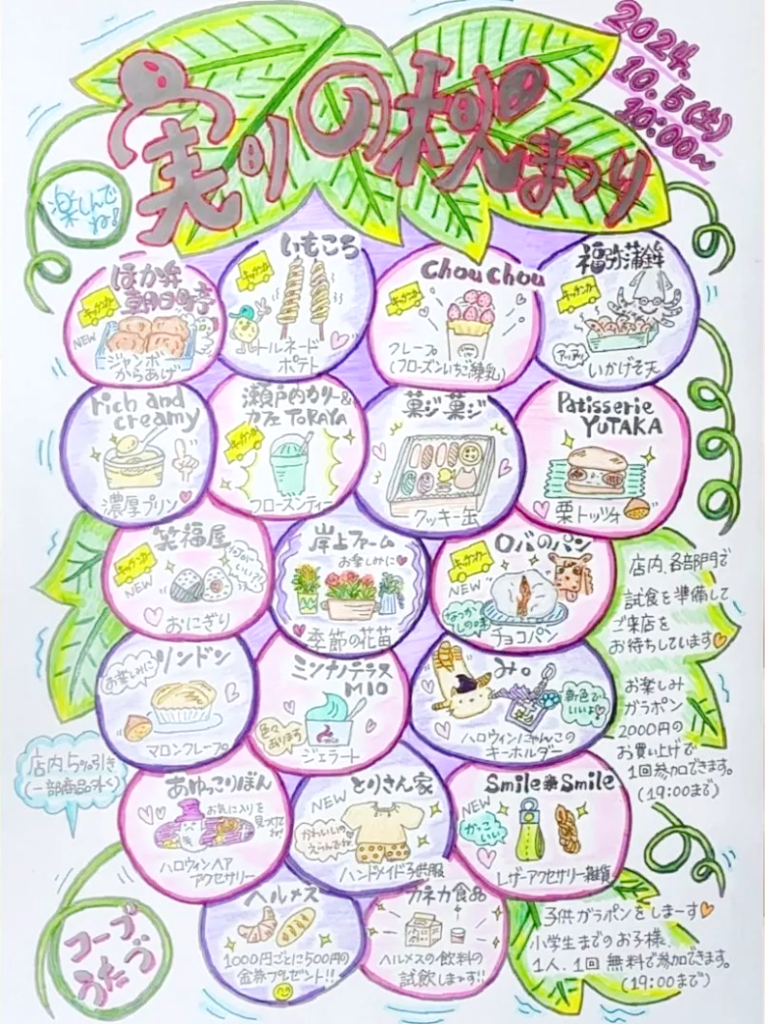 2024.
10.5(土)
10:00~
実りの秋まつり
楽しんで
ね!
ほか弁
朝日町店
キッチンカー
NEW
ジャンボ
からあげ
いもころ
キッチンカー
トルネード
ポテト
chou chou
キッチンカー
クレープ
(フローズンいちご練乳)
福弥蒲鉾
キッチンカー
アツアツ
いかげそ天
rich and
creamy
濃厚プリン
瀬戸内カリー&
カフェToRAYA
キッチンカー
フローズンティー
菓ジ菓ジ
クッキー缶
Patisserie
YUTAKA
栗トッツォ
笑福屋
キッチンカー
NEW
おにぎり
岸上ファーム
お楽しみに
季節の花苗
ロバのパン
キッチンカー
NEW
なつか
しの味
チョコパン
店内、各部門で
試食を準備して
ご来店を
お待ちしています
リンドン
お楽しみに
マロンクレープ
ミンナノテラス
MIO
色々
あります
ジェラート
み。
新色で~
いいよ
ハロウィンにゃんこの
キーホルダー
お楽しみ
ガラポン
2000円の
お買い上げで
1回参加できます。
(19:00まで)
店内5%引き
(一部商品のぞく)
あゆっこりぼん
お気に入りを
見つけてね
ハロウィンヘア
アクセサリー
とりさん家
NEW
かわいいの
そろってるよ
ハンドメイド子供服
Smile*Smile
NEW
かっこ
いい
レザーアクセサリー雑貨
ヘルメス
1000円ごとに500円の
金券プレゼント!!
カネカ食品
ヘルメスの飲料の
試飲します!!
子供ガラポンをしまーす
小学生までのお子様、
1人、1回 無料で参加できます。
(19:00まで)
コープ
うたづ